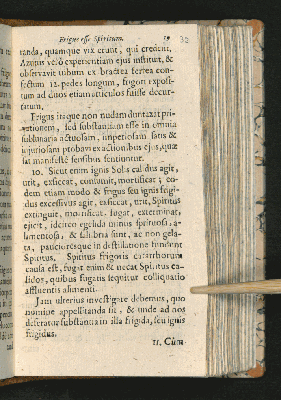 Frigus esse Spiritum. 19
randa, quamque vix erunt, qui credent,
Azutus verò experientiam ejus instituit, &
observavit tubum ex bractea ferrea con-
fectum 12. pedes longum, frigori exposi-
tum ad duos etiam articulos fuisse decur-
tatum.
Frigus itaque non nudam duntaxat pri-
vationem, sed substantiam esse in omnia
sublunaria actuosam, imperiosam satis &
injuriosam probant exactionibus ejus, quæ
sat manifestè sensibus sentiuntur.
10. Sicut enim ignis Solis calidus agit,
urit, exsiccat, comburit, mortificat; eo-
dem etiam modo & frigus seu ignis frigi-
dus excessivus agit, exsiccat, urit, Spiritus
extinguit, mortificat, fugat, exterminat,
ejicit, ideirco egelida minus spirituosa, a-
limentosa, & salubria sunt, ac non gela-
ta, paucioresque in destillatione fundunt
Spiritus. Spiritus frigoris catarrhorum
causa est, fugat enim & necat Spiritus ca-
lidos, quibus fugatis sequitur colliquatio
affluentis alimenti.
Jam ulterius investigare debemus, quo
nomine appellitanda sit, & unde ad nos
deferatur substantia in illa frigida, seu ignis
frigidus.
11. Cùm